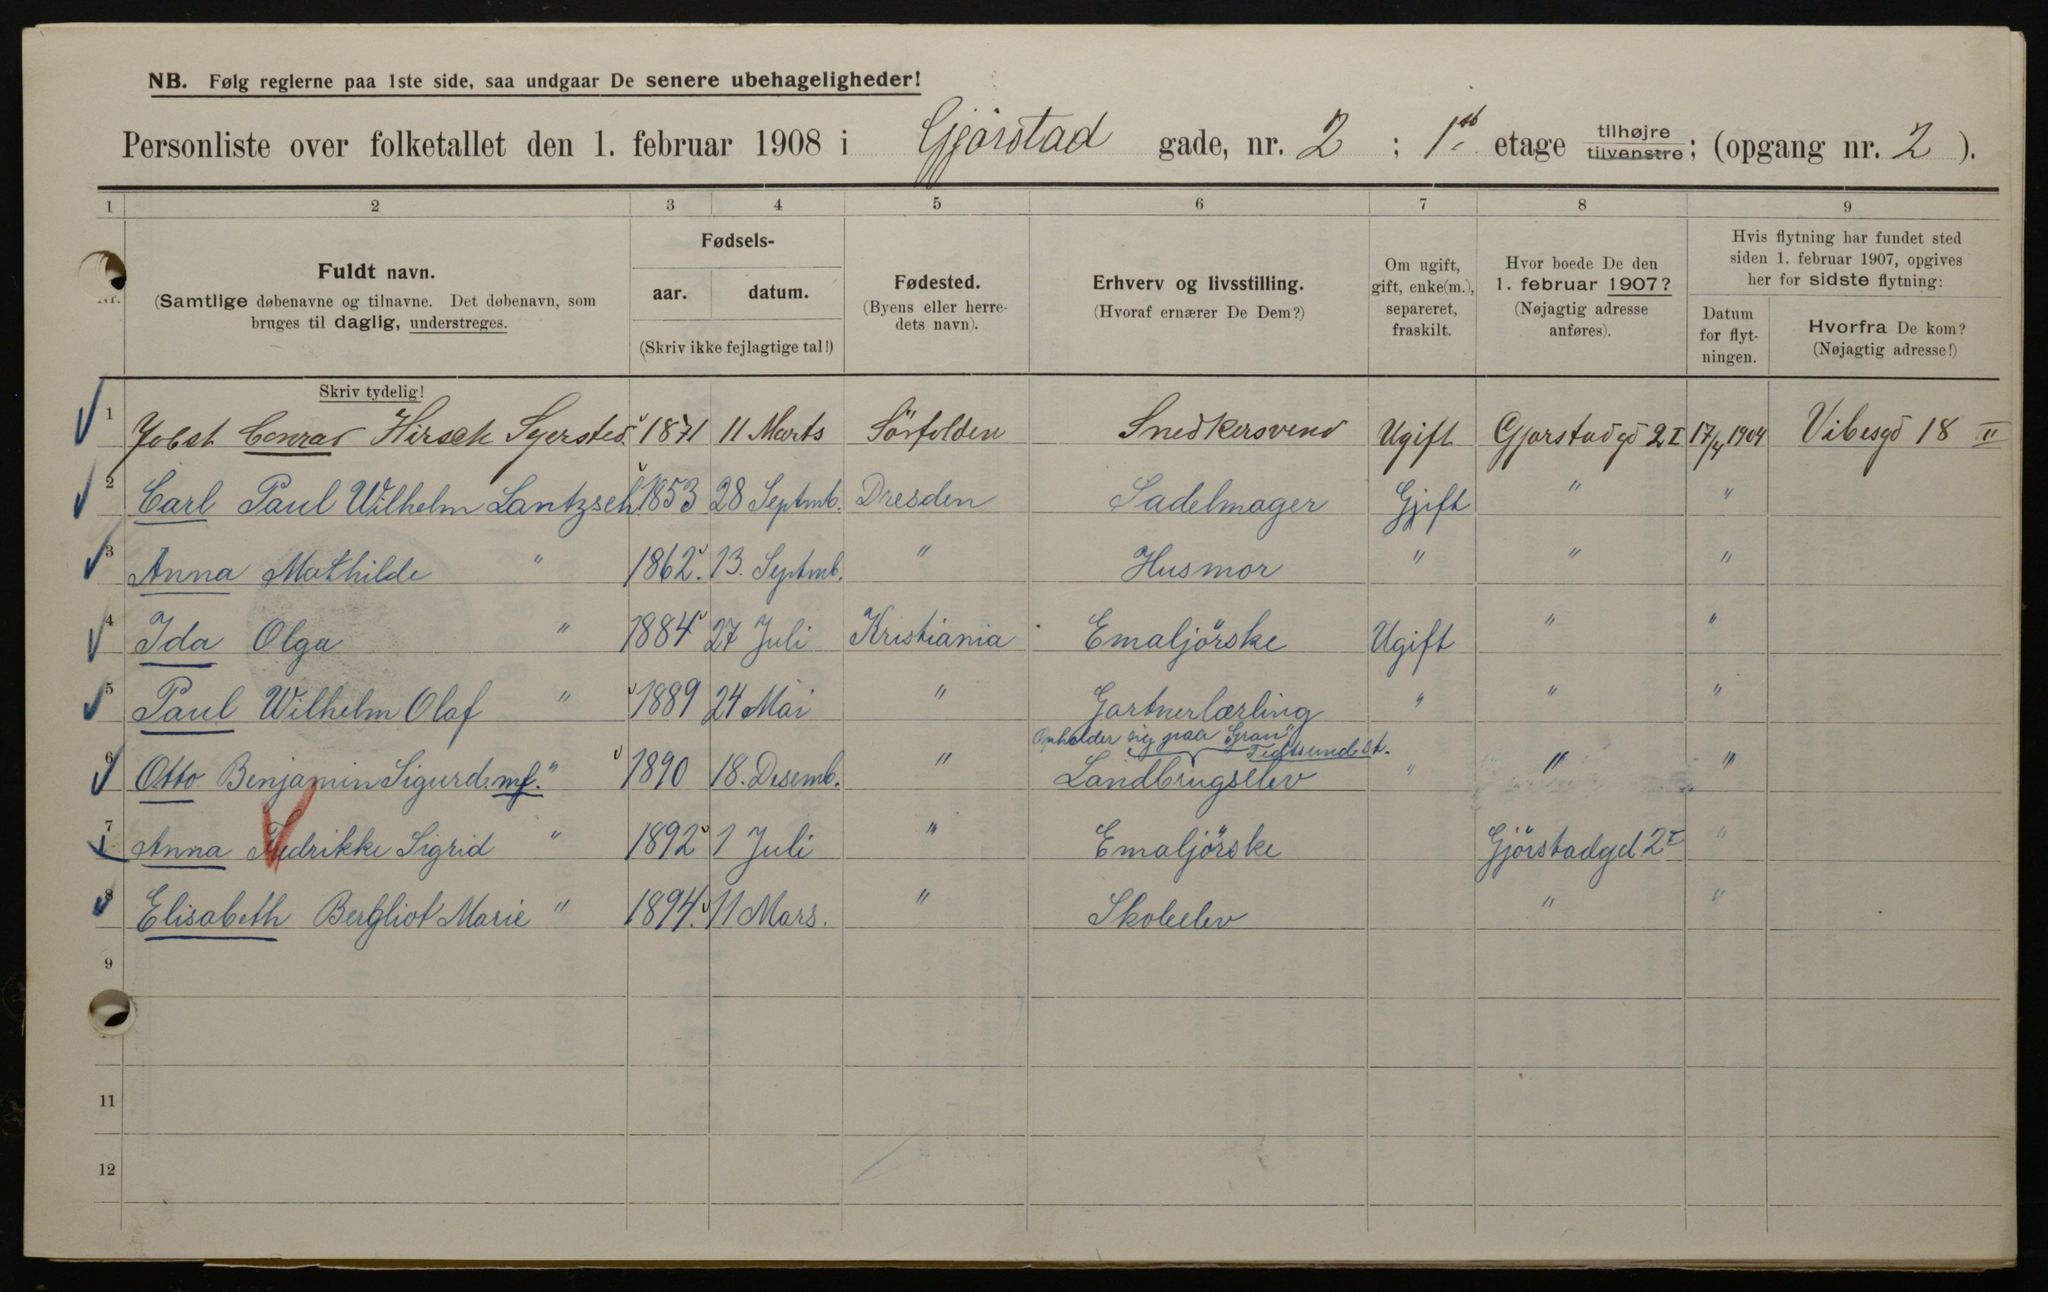 NB. Følg reglerne paa 1ste side, saa undgaar De senere ubehageligheder!
Personliste over folketallet den 1. februar 1908 i Gjörstad gade, nr. 2 ; 1ste etage tilhøjre tilvenstre; (opgang nr. 2 ).
1 2 3 4 5 6 7 8 9
Nr.
Fuldt navn.
(Samtlige døbenavne og tilnavne. Det døbenavn, som
bruges til daglig, understreges.
Skriv tydelig!
Fødsels-
aar. datum.
(Skriv ikke fejlagtige tal!)
Fødested.
(Byens eller herre-
dets navn).
Erhverv og livsstilling.
(Hvoraf ernærer De Dem?)
Om ugift,
gift, enke(m.),
separeret,
fraskilt.
Hvor boede De den
1. februar 1907?
(Nøjagtig adresse
anføres).
Hvis flytning har fundet sted
siden 1. februar 1907, opgives
her for sidste flytning:
Datum
for flyt-
ningen.
Hvorfra De kom?
(Nøjagtig adresse!)
1 Jobst Conrad Hirsch Sejersted 1871 11 Marts Sörfolden Snedkersvend Ugift Gjorstadgd 2 I 17/4 1904 Vibesgd 18 II
2 Carl Paul Wilhelm Lantzsch 1853 28 Septmb. Dresden Sadelmager Gjift " "
3 Anna Mathilde " 1862. 13. Septmb. " Husmor " " "
4 Ida Olga " 1884 27 Juli Kristiania Emaljörske Ugift " "
5 Paul Wilhelm Olaf " 1889 24 Mai " Gartnerlærling " " "
Opholder sig paa "Gran"
6 Otto Benjamin Sigurd. mf. " 1890 18. Desemb. " Landbrugselev " " "
7 Anna Fredrikke Sigrid " 1892 1 Juli " Emaljörske Gjörstadgd 2 I "
8 Elisabeth Bergliot Marie " 1894. 11 Mars. " Skoleelev " "
9
11
12